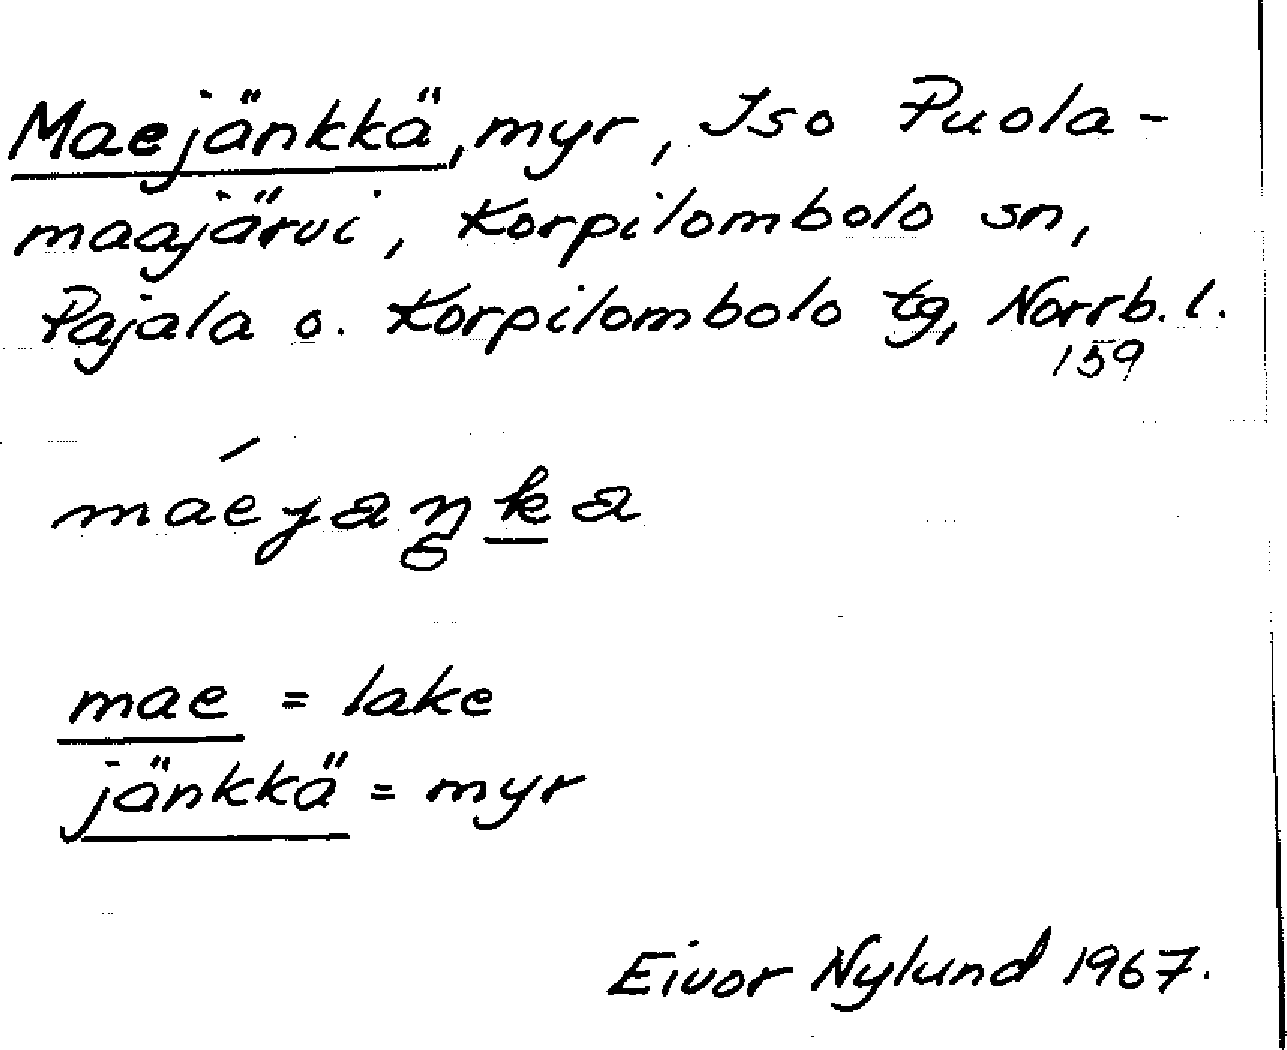 Maejänkkä, myr, Iso Puola-
maajärvi, Korpilombolo sn,
Pajala o. Korpilombolo tg, Norrb. l.
159
mae = lake
jänkkä = myr
Eivor Nylund 1967.